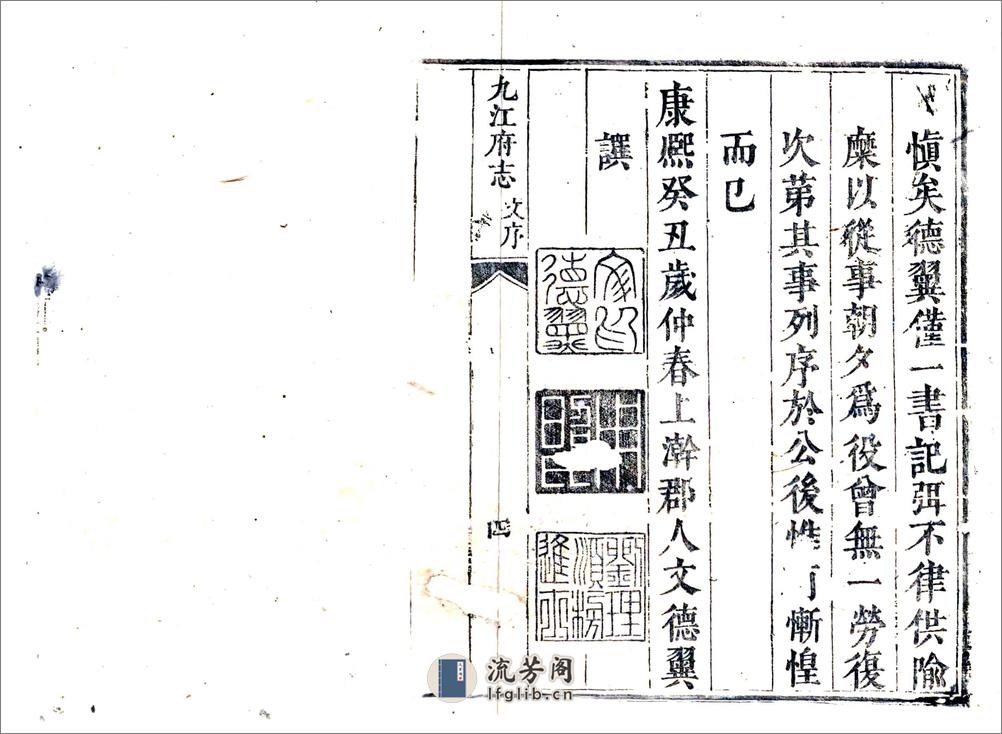 愼矣德翼僅一書記弭不律供隃
糜以從事朝夕爲役曾無一勞復
次第其事列序於公後惟 慚惶
而已
康熙癸丑歲仲春上澣郡人文德翼
譔
文印德翼
九江府志 文序 四
流芳阁
lfglib.cn